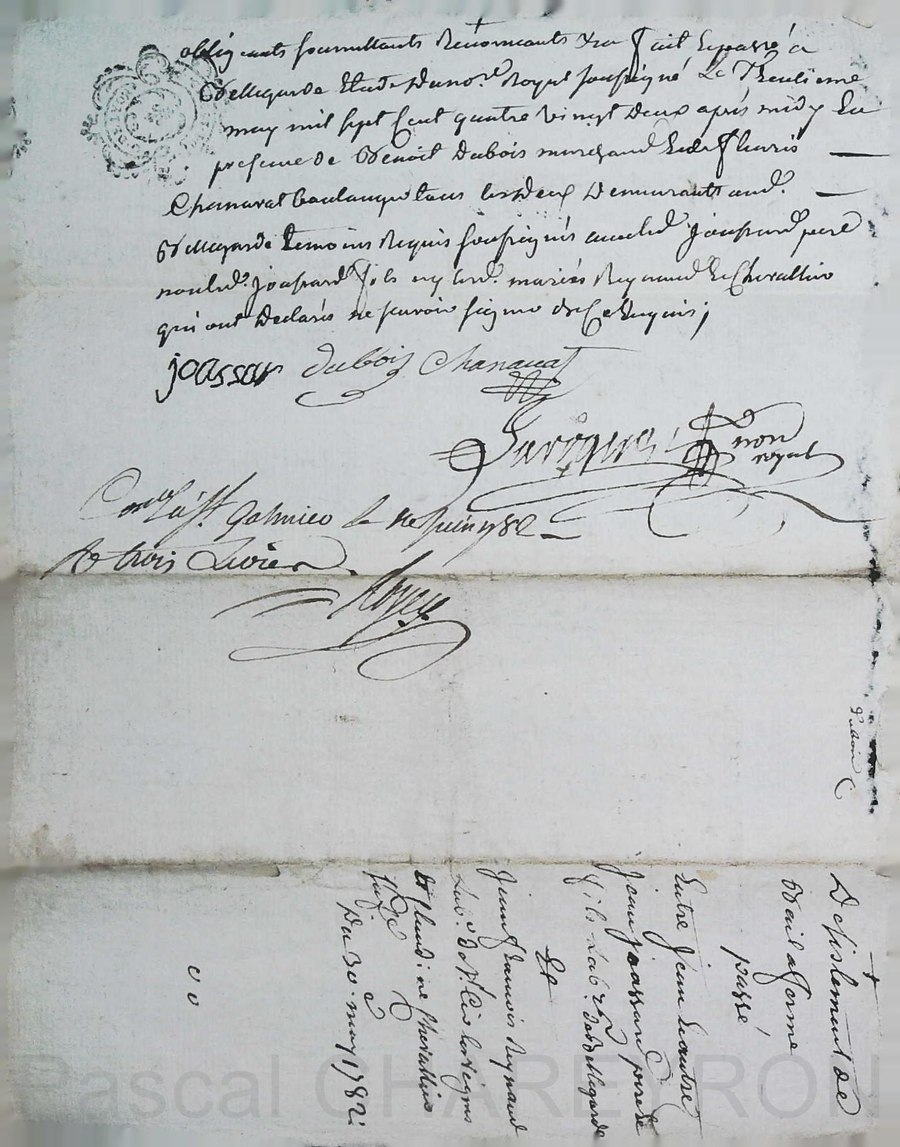 obligeants soumettants Renonceants &ra fait et passé a
Bellegarde Etude du no.re Royal soussigné Le Trentieme
may mil sept Cent quatre vingt deux après midy En
presence de Benoit Dubois marchand et de fleuris
Chanavat boulanger tous les deux Demeurants aud.
Bellegarde temoins Requis soussignés avec led. Joassard pere
non led. Joassard fils ny lesd. mariés Reynaud et Chevallier
qui ont Declarés ne savoir signer de Ce Enquis
joassar Dubois Chanavat
non
royal
St. Galmier le juin 1782
trois Livres
Desistement de
Bail a ferme
passé
Entre Jean & autre
Jean joassard pere &
fils Lab.rs de Bellegarde
Et
Reynaud
Lab.
& Claudine Chevallier
Du 30. may 1782